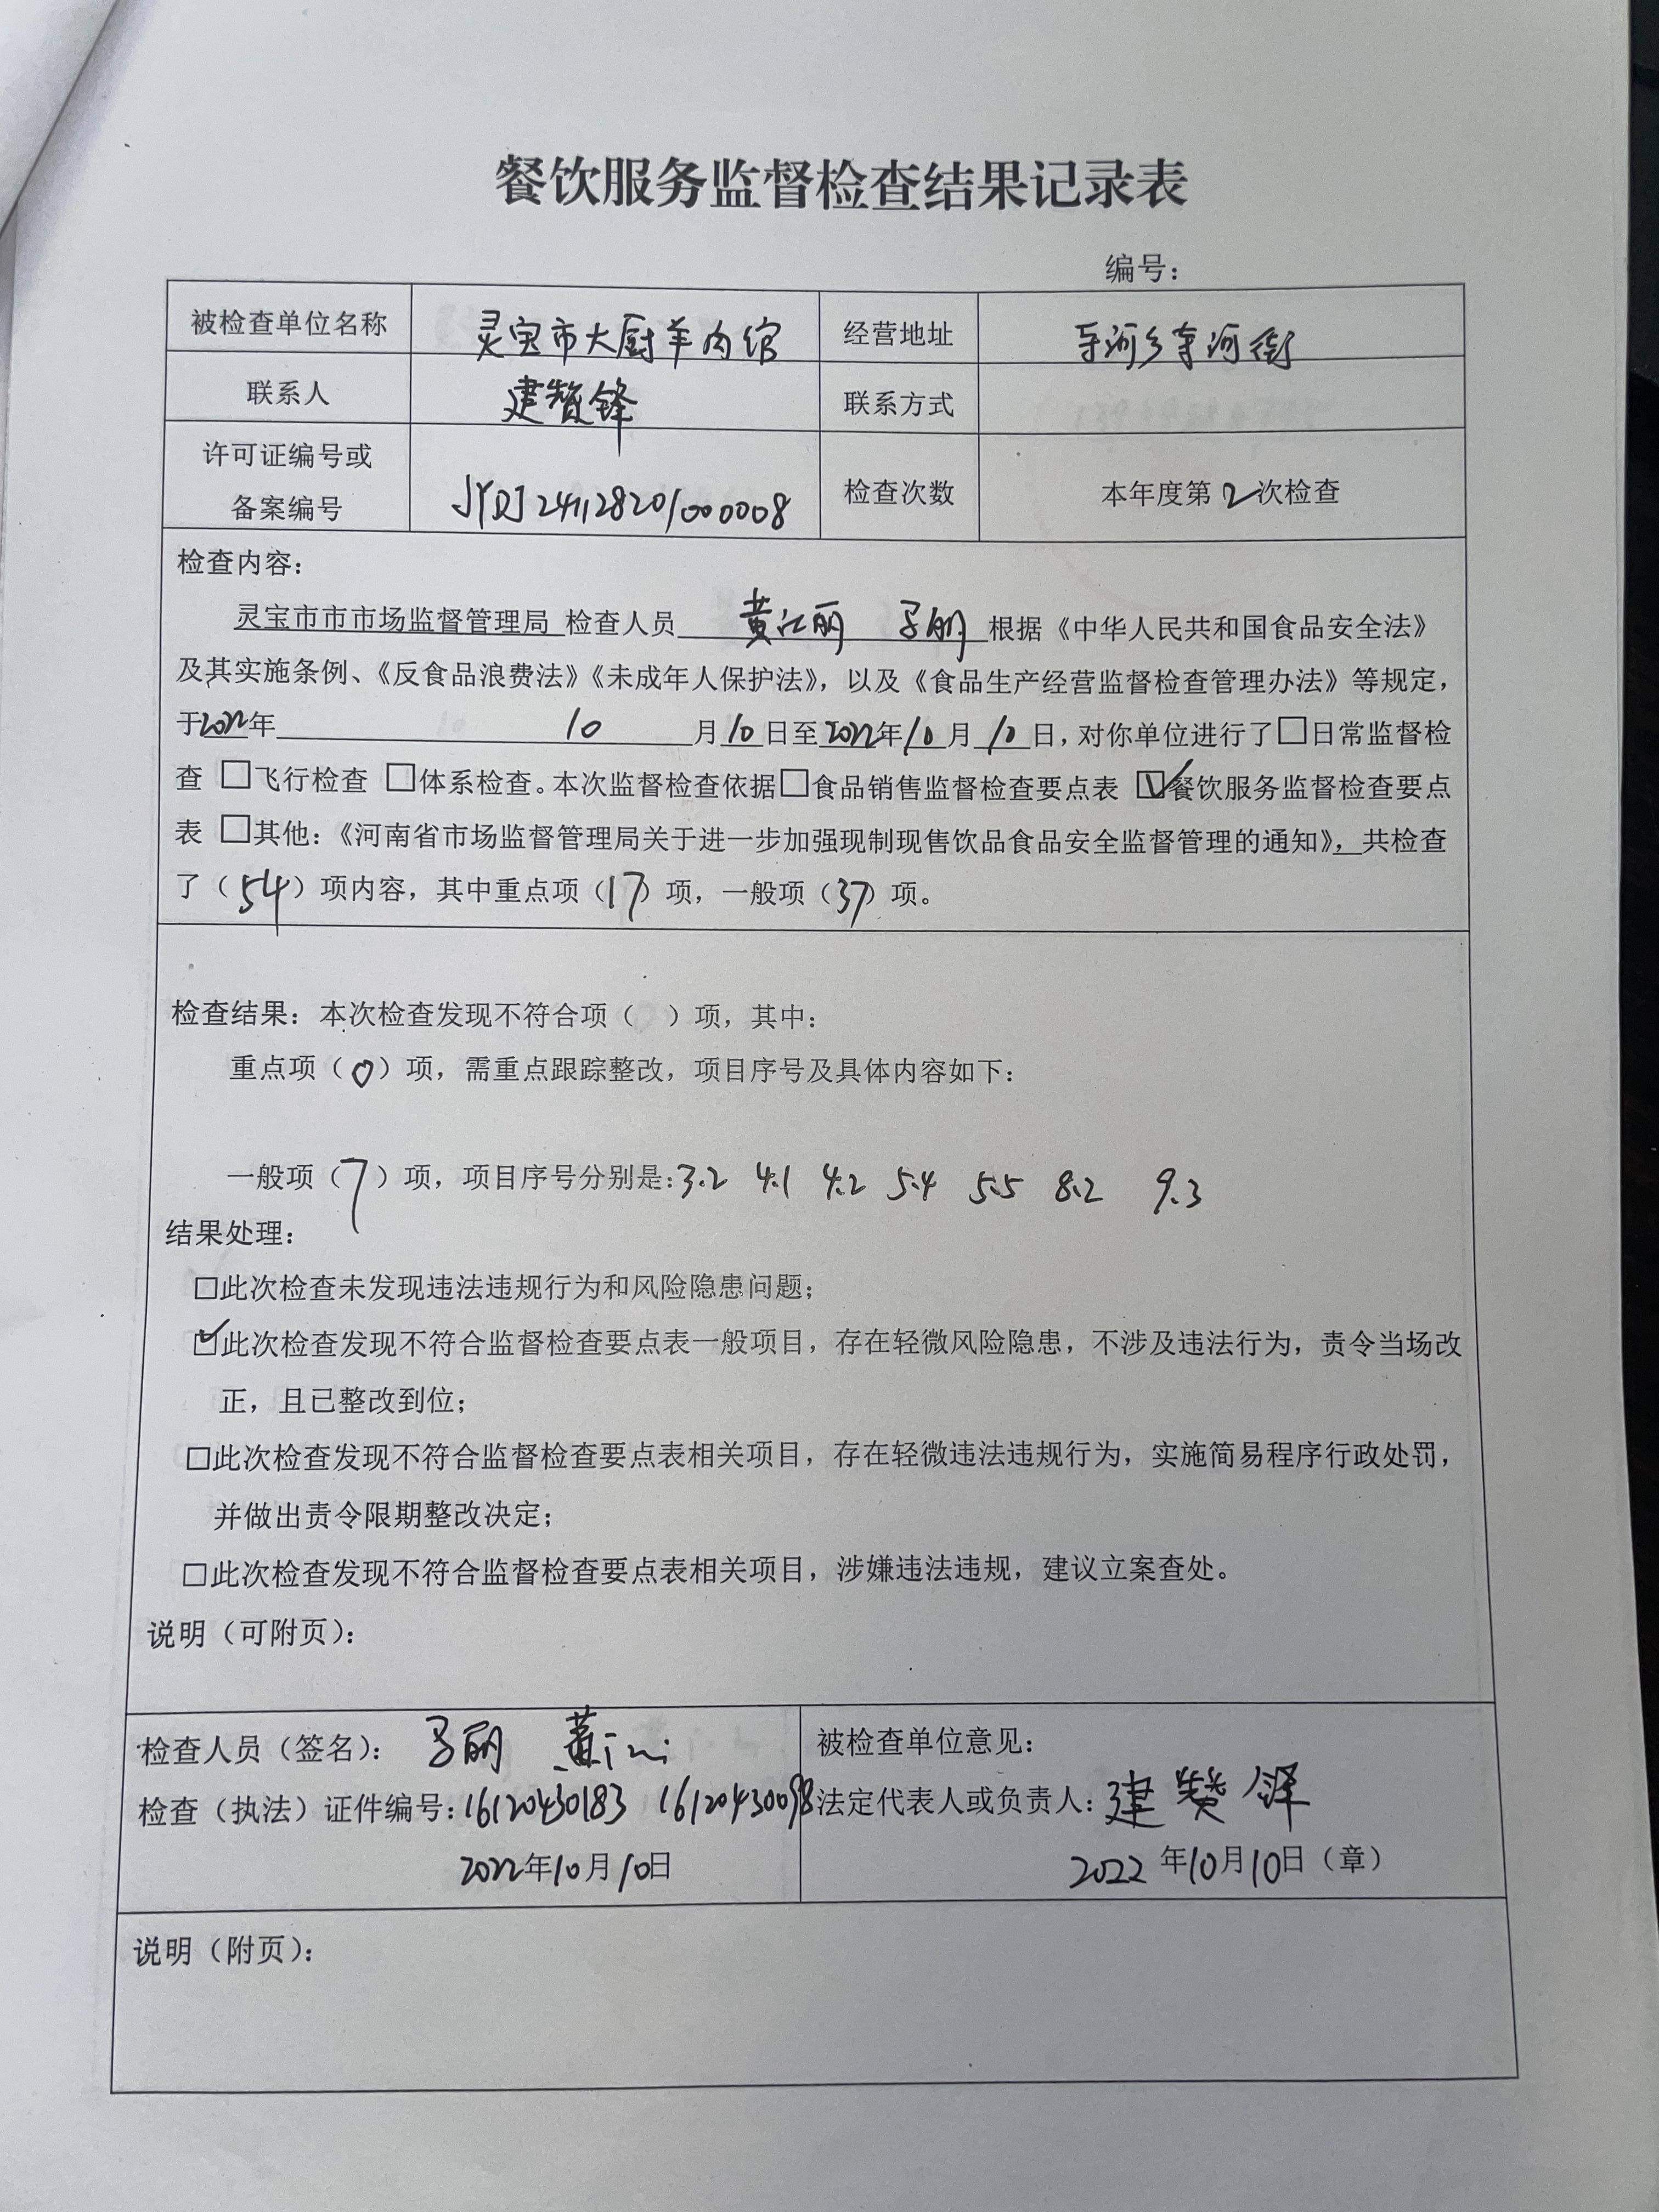 餐饮服务监督检查结果记录表
编号：
被检查单位名称 灵宝市大厨羊肉馆 经营地址 寺河乡寺河街
联系人 建赞锋 联系方式
许可证编号或
备案编号 JYDJ241128201000008 检查次数 本年度第2次检查
检查内容：
灵宝市市市场监督管理局 检查人员 黄江丽 根据《中华人民共和国食品安全法》
及其实施条例、《反食品浪费法》《未成年人保护法》，以及《食品生产经营监督检查管理办法》等规定，
于2022年 10 月10日至2022年10月10日，对你单位进行了□日常监督检
查 □飞行检查 □体系检查。本次监督检查依据□食品销售监督检查要点表 ☑餐饮服务监督检查要点
表 □其他：《河南省市场监督管理局关于进一步加强现制现售饮品食品安全监督管理的通知》，共检查
了（54）项内容，其中重点项（17）项，一般项（37）项。
检查结果：本次检查发现不符合项（ ）项，其中：
重点项（0）项，需重点跟踪整改，项目序号及具体内容如下：
一般项（7）项，项目序号分别是：3.2 4.1 4.2 5.4 5.5 8.2 9.3
结果处理：
□此次检查未发现违法违规行为和风险隐患问题；
☑此次检查发现不符合监督检查要点表一般项目，存在轻微风险隐患，不涉及违法行为，责令当场改
正，且已整改到位；
□此次检查发现不符合监督检查要点表相关项目，存在轻微违法违规行为，实施简易程序行政处罚，
并做出责令限期整改决定；
□此次检查发现不符合监督检查要点表相关项目，涉嫌违法违规，建议立案查处。
说明（可附页）：
检查人员（签名）：
检查（执法）证件编号：16120430183 16120430098
2022年10月10日
被检查单位意见：
法定代表人或负责人：建赞锋
2022年10月10日（章）
说明（附页）：